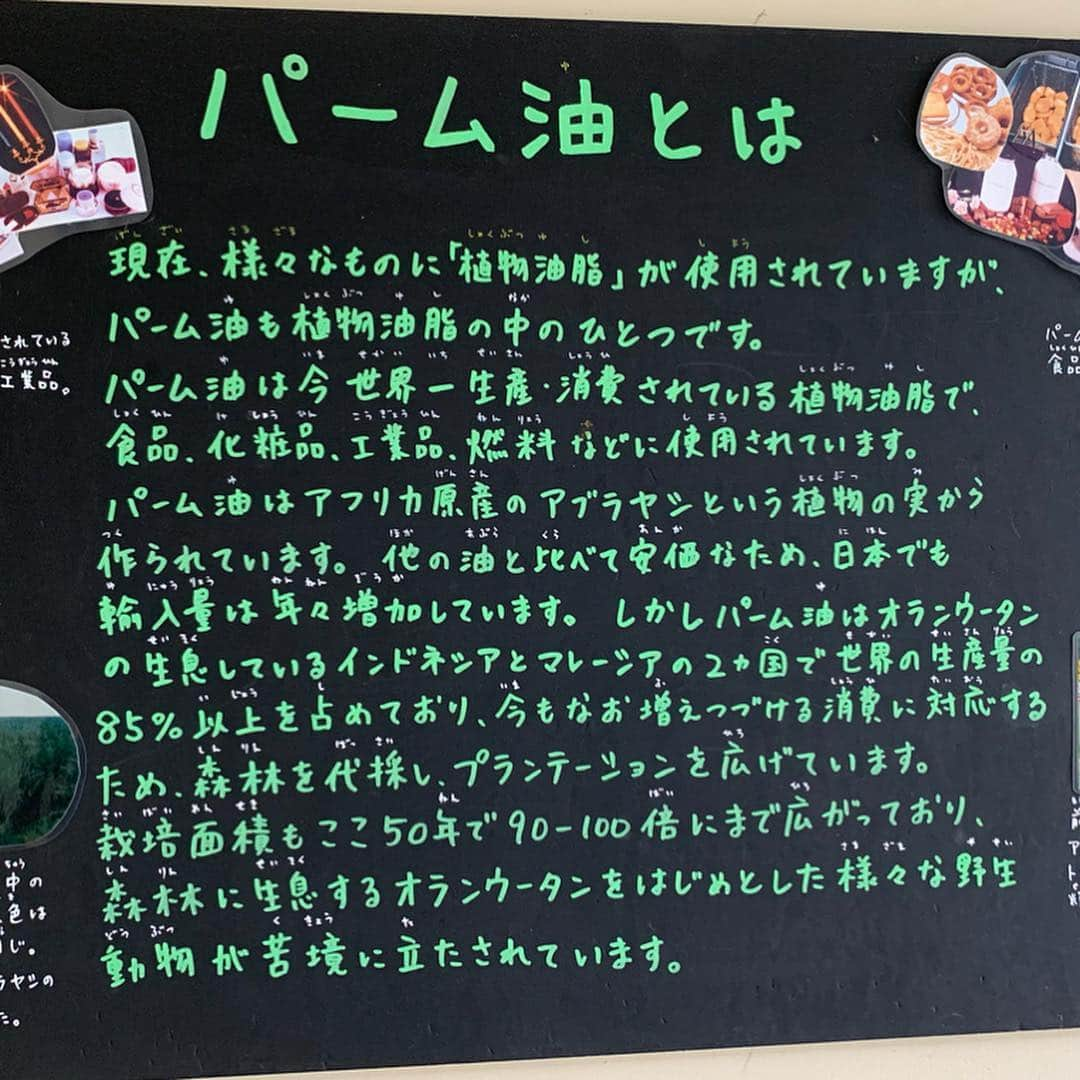 パーム油とは
現在、様々なものに「植物油脂」が使用されていますが、
パーム油も植物油脂の中のひとつです。
パーム油は今世界一生産・消費されている植物油脂で、
食品、化粧品、工業品、燃料などに使用されています。
パーム油はアフリカ原産のアブラヤシという植物の実から
作られています。他の油と比べて安価なため、日本でも
輸入量は年々増加しています。しかしパーム油はオランウータン
の生息しているインドネシアとマレーシアの2ヵ国で世界の生産量の
85%以上を占めており、今もなお増えつづける消費に対応する
ため、森林を伐採し、プランテーションを広げています。
栽培面積もここ50年で90-100倍にまで広がっており、
森林に生息するオランウータンをはじめとした様々な野生
動物が苦境に立たされています。
されている
工業品。
中の
色は
じ。
ラヤシの
た。
パーム
食品